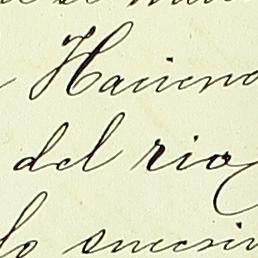 Hacien
del rio
lo sucesiv